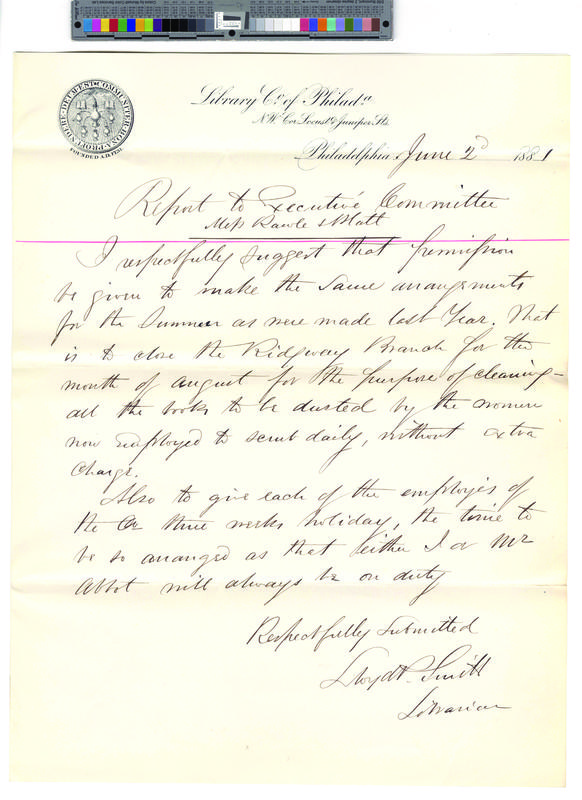 Library Co. of Philada.
N.W. Cor. Locust & Juniper Sts.
COMMUNITER BONA PROFUNDERE DEUM EST
FOUNDED A.D. 1731
Philadelphia, June 2d 1881
Report to Executive Committee
Mess Rawle & Platt
I respectfully suggest that permission
be given to make the same arrangements
for the Summer as were made last Year. That
is to close the Ridgway Branch for the
month of August for the purpose of cleaning –
all the books to be dusted by the women
now employed to scrub daily, without extra
charge.
Also to give each of the employés of
the Co. three weeks holiday, the time to
be so arranged as that either I or Mr
Abbot will always be on duty
Respectfully submitted
Lloyd P. Smith
Librarian